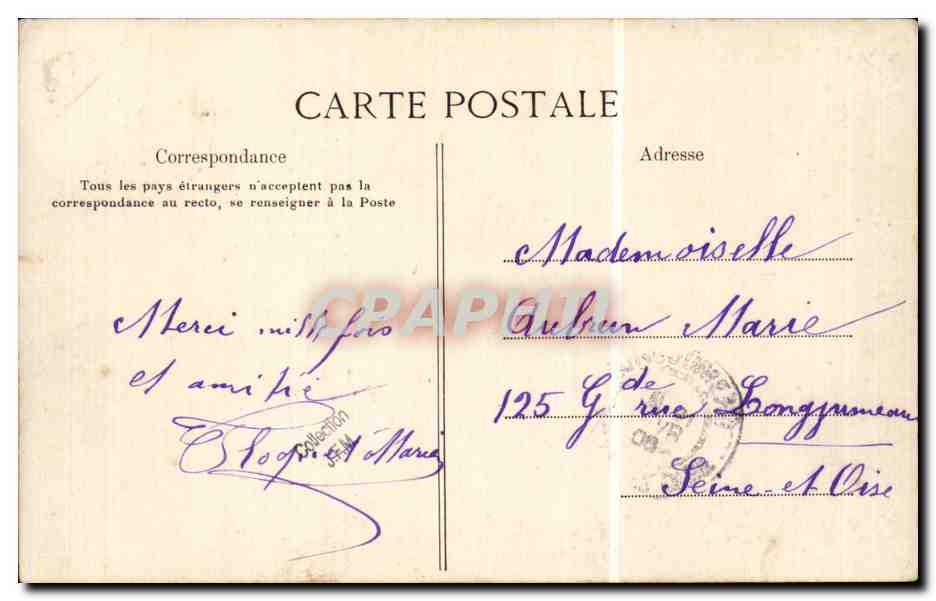 CARTE POSTALE
Correspondance
Tous les pays étrangers n'acceptent pas la
correspondance au recto, se renseigner à la Poste
Merci mille fois
et amitié
Marie
Collection
J.F.M
Adresse
Mademoiselle
Aubrun Marie
125 Gde rue Longjumeau
Seine-et Oise
CPAPHIL